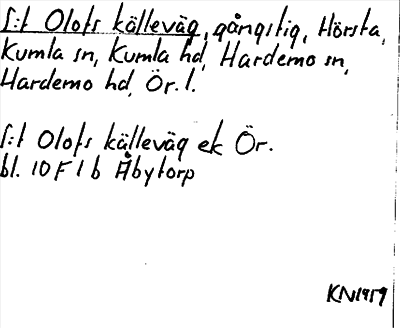 S:t Olofs källeväg, gångstig, Hörsta,
Kumla sn, Kumla hd, Hardemo sn,
Hardemo hd, Ör. l.
S:t Olofs källeväg ek Ör.
bl. 10 F 1 b Åbytorp
KN1959